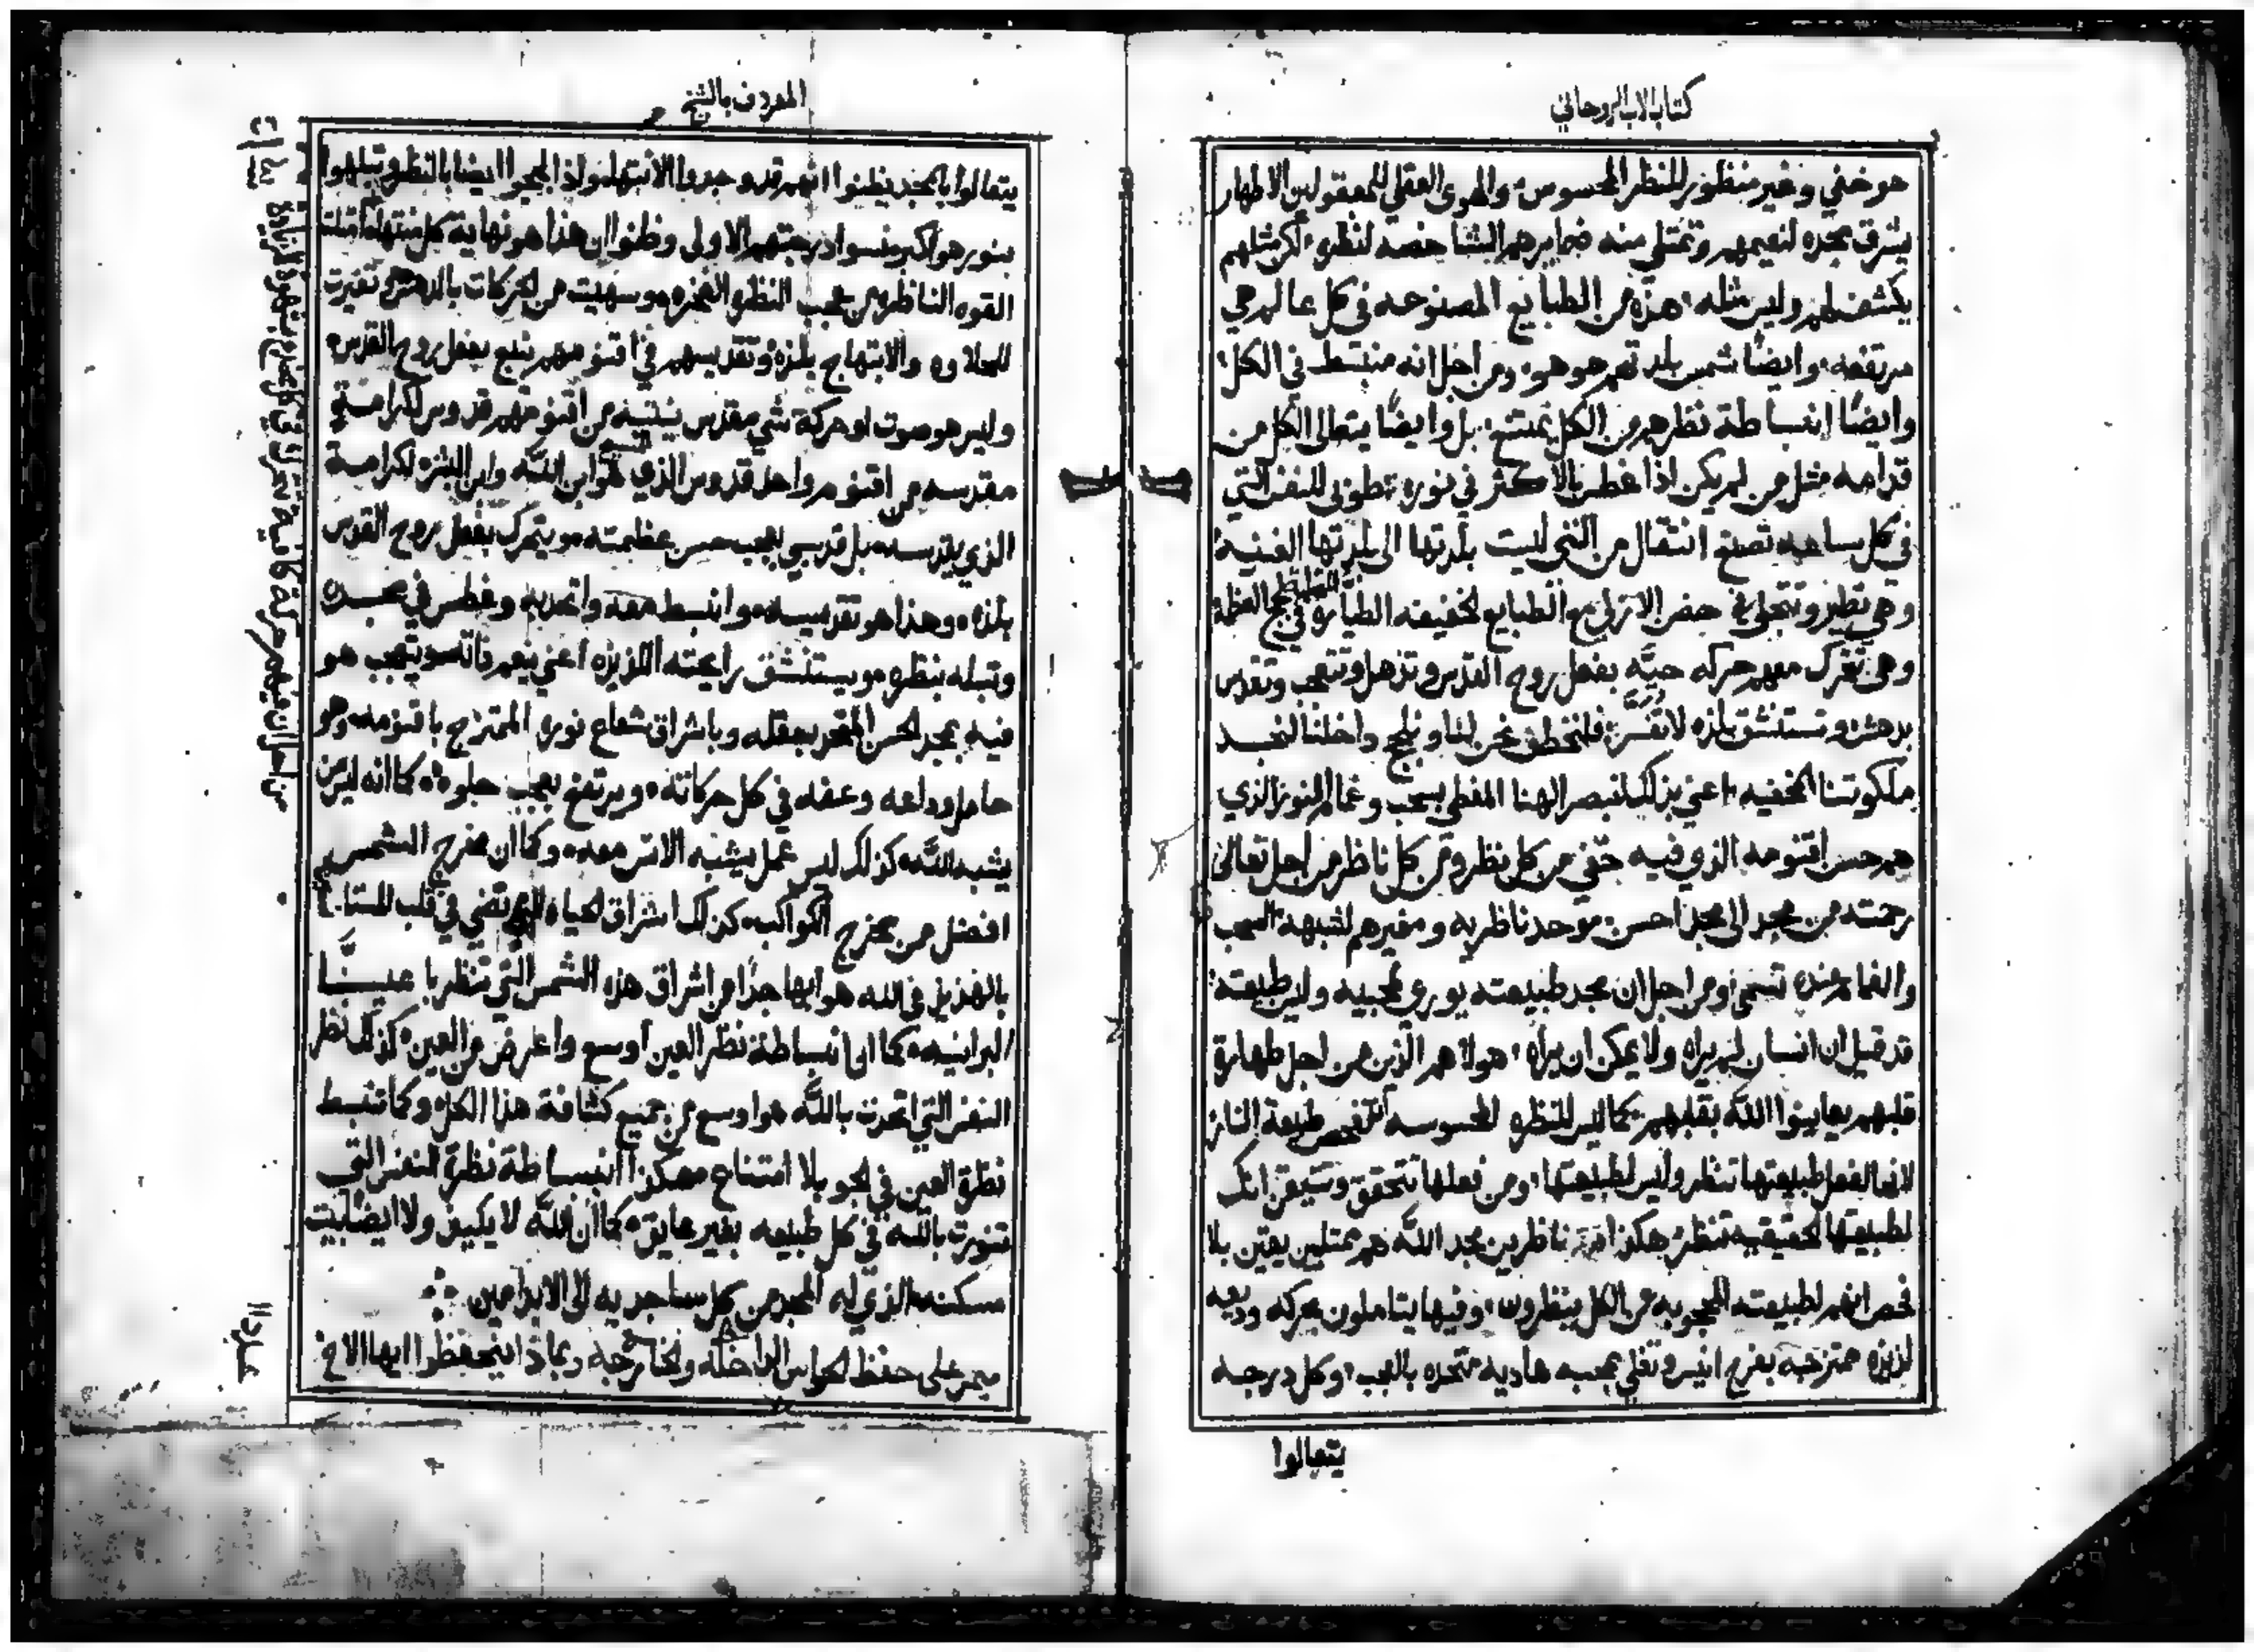 كتاب الاب الروحاني
هو خفي وغير منظور للنظر المحسوس والهوى العقلي للمعقولين الاطهار
يشرق بمجده لنعيمهم وتمتلي منه ضمايرهم الشاخصه لنظره لكن مثلهم
يكشف لهم وليس مثله هذه من الطبايع المصنوعه في كل عالم هي
مرتفعه وايضًا شمس بلدتهم هو هو ومن اجل انه منبسط في الكل
وايضًا انبساطة نظرهم من الكل يمتنع بل وايضًا يتعالى الكل من
قدامه مثل من لم يكن اذا غطس بالاكثر في نوره طوبى للنفس التي
في كل ساعه تصنع انتقال من التي ليست بلدتها الى بلدتها الغنيه
وهي تطير وتتجلى في حضن الازلي مع الطبايع الخفيفه الطياره في لجج العظمه
وهي تتحرك معهم حركه حيَّه بفعل روح القدس وتذهل وتتعجب وتقدس
بدهش وتستنشق بلذه لا تفسَّر فلنخطف نحن لنا ونلج داخلنا لنجد
ملكوتنا الخفيه اعني بذلك لنبصر الهنا المغطى بسحب وغمام النور الذي
هم حسن اقنومه الذي فيه خفي من كل نظر ومن كل ناظر من اجل تعالى
رحمته من مجد الى مجد احسن موحد ناظريه ومغيرهم لشبهه السحب
والغمام عنده تسمى ومن اجل ان مجد طبيعته يوري لمحبيه وليس طبيعته
قد قيل ان انسان لم يراه ولا يمكن ان يراه هولاء هم الذين من اجل طهارة
قلبهم يعاينوا الله بقلبهم كما ليس للنظره المحسوسه ان تفحص طبيعة النار
لانها لفعل طبيعتها تنظر وليس لطبيعتها ومن فعلها تتحقق وتتيقن انك
لطبيعتها الحقيقيه تنظر هكذا ناظرين مجد الله هم ممتلين يقين بلا
فحص انهم لطبيعته المحجوبه من الكل ينظرون وفيها يتاملون بحركه وديعه
لذيذه ممتزجه بفرح انيس وتغلي بمحبه هاديه متحده بالعجب وكل درجه
يتعالوا
المعروف بالشيخ
يتعالوا بالمجد يظنوا انهم قد وجدوا الانتها واذ الجوا ايضا بالنظر وتبلهوا
بنور هو اكبر ونسوا درجتهم الاولى وظنوا ان هذا هو نهاية كل منتها امتلت
القوه الناظره من عجب النظر الفخره وسهيت من الحركات بالدهش وتغيرت
للحلاوه والابتهاج بلذه وتقديسهم في اقنومهم تنبع بفعل روح القدس
وليس هو صوت او حركة شي مقدس ينبثه من اقنومهم قدوس لكرامة
مقدسه من اقنوم واحد قدوس الذي هو ابن الله وابن البشر لكرامة
الذي يقدسه بل قدس يعجب حسن عظمته ويتحرك بفعل روح القدس
بلذه وهذا هو تقديسه وانبسط معه واتحد به وغطس في مجده
وتبله بنظره ويستنشق رايحته اللذيذه اعني ينعم ذاته ويتعجب هو
فيه بمجد الحسن المتحد بعقله وباشراق شعاع نوره الممتزج باقنومه وهو
حامل وداعه وعفه في كل حركاته ويرتفع بعجب حلوه كما انه ليس من
يشبه الله كذلك ليس عمل يشبه الانس معه وكما ان مخرج الشمس
افضل من مخرج الكواكب كذلك اشراق الحياه الذي تضي في قلب
بالهذيذ في الله هو ابها جدًا من اشراق هذه الشمس التي تنظر باعيننًا
البرانيه كما ان انبساطة نظر العين اوسع واعرض من العين كذلك نظر
النفس التي اتحدت بالله هو اوسع من جميع كثافة هذا الكل وكما تنبسط
نظرة العين في الجو بلا امتناع هكذا انبساطة نظرة النفس التي
تنورت بالله في كل طبيعه بغير عايق كما ان الله لا يكيف ولا ايضا بيت
مسكنه الذي له المجد من كل ساجديه الى الابد امين
ميمر على حفظ الحواس الداخله والخارجه وبماذا يتحفظوا ايها الاخ